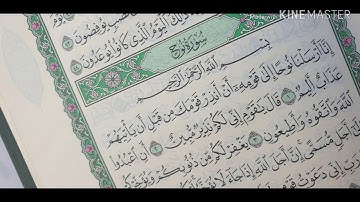 Made With KINEMASTER
ذَٰلِكَ الْيَوْمُ الَّذِي كَانُوا يُوعَدُونَ
سُورَةُ نُوحٍ
بِسْمِ اللَّهِ الرَّحْمَٰنِ الرَّحِيمِ
إِنَّا أَرْسَلْنَا نُوحًا إِلَىٰ قَوْمِهِ أَنْ أَنذِرْ قَوْمَكَ مِن قَبْلِ أَن يَأْتِيَهُمْ
عَذَابٌ أَلِيمٌ ١ قَالَ يَا قَوْمِ إِنِّي لَكُمْ نَذِيرٌ مُّبِينٌ ٢ أَنِ اعْبُدُوا
اللَّهَ وَاتَّقُوهُ وَأَطِيعُونِ ٣ يَغْفِرْ لَكُم مِّن ذُنُوبِكُمْ وَيُؤَخِّرْكُمْ
أَجَلٍ مُّسَمًّى إِنَّ أَجَلَ اللَّهِ إِذَا جَاءَ لَا
رَبِّ إِنِّي دَعَوْتُ قَوْمِي